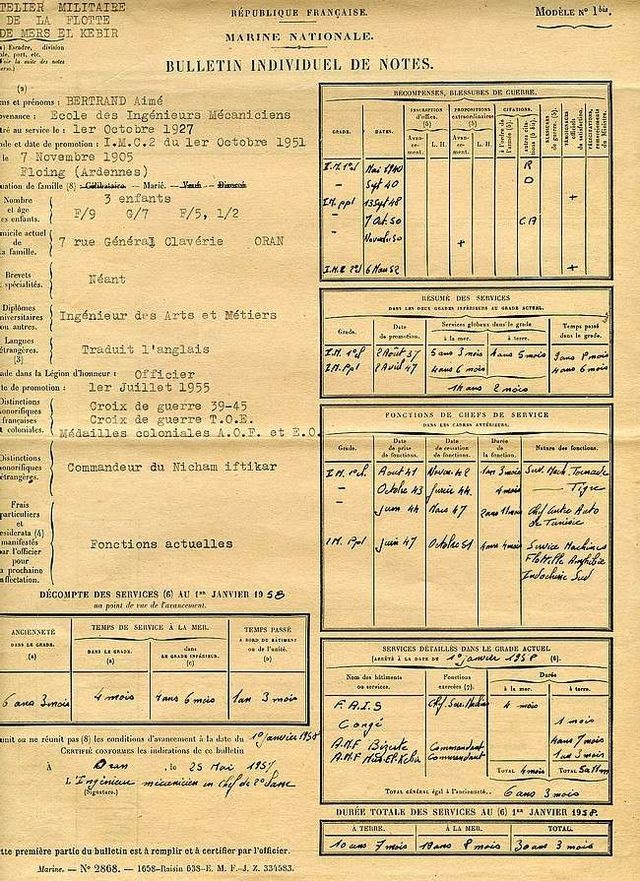 TELIER MILITAIRE
DE LA FLOTTE
DE MERS EL KEBIR
RÉPUBLIQUE FRANÇAISE.
MODÈLE N° 1bis.
MARINE NATIONALE.
BULLETIN INDIVIDUEL DE NOTES.
ms et prénoms : BERTRAND Aimé
venance : Ecole des Ingénieurs Mécaniciens
tré au service le : 1er Octobre 1927
de et date de promotion : I.M.C.2 du 1er Octobre 1951
le 7 Novembre 1905
Floing (Ardennes)
uation de famille (8) Célibataire — Marié. — Veuf — Divorcé
Nombre et âge es enfants. 3 enfants
F/9 G/7 F/5, 1/2
micile actuel de la famille. 7 rue Général Clavérie ORAN
Brevets spécialités. Néant
Diplômes niversitaires ou autres. Ingénieur des Arts et Métiers
Langues trangères. (3) Traduit l'anglais
ade dans la Légion d'honneur : Officier
te de promotion : 1er Juillet 1955
Distinctions onorifiques françaises t coloniales. Croix de guerre 39-45
Croix de guerre T.O.E.
Médailles coloniales A.O.F. et E.O.
Distinctions onorifiques trangères. Commandeur du Nicham iftikar
Frais particuliers et esiderata (4) manifestés par l'officier pour la prochaine affectation. Fonctions actuelles
DÉCOMPTE DES SERVICES (6) AU 1er JANVIER 1958
au point de vue de l'avancement.
ANCIENNETÉ DANS LE GRADE. (a)
TEMPS DE SERVICE À LA MER.
DANS LE GRADE. (b)
dans LE GRADE INFÉRIEUR. (c)
TEMPS PASSÉ À BORD DU BÂTIMENT ou de l'unité. (a)
6 ans 3 mois 4 mois 4 ans 6 mois 1 an 3 mois
unit ou ne réunit pas (8) les conditions d'avancement à la date du 1er janvier 1958
CERTIFIÉ CONFORMES les indications de ce bulletin
À Oran, le 25 Mai 1957
L'Ingénieur mécanicien en Chef de 2e classe
(Signature.)
tte première partie du bulletin est à remplir et à certifier par l'officier.
Marine. — N° 2868. — 1658-Raisin 638-E. M. F.-J. Z. 334583.
RÉCOMPENSES, BLESSURES DE GUERRE.
GRADE. DATES.
INSCRIPTION d'office. (5)
PROPOSITIONS extraordinaires (5)
CITATIONS.
Avancement. L. H. Avancement. L. H.
à l'ordre de l'armée (5).
autres citations (5 bis).
BLESSURES de guerre. (5).
TÉMOIGNAGES officiels de satisfaction.
I.M. 1e cl Mai 1940 R
– Sept 40 D
I.M. ppl 13 Sept 48 +
– 7 Oct. 50 CA
– Novembre 50 +
I.M.C 2e cl 6 Mars 52 +
RÉSUMÉ DES SERVICES
DANS LES DEUX GRADES INFÉRIEURS AU GRADE ACTUEL.
Grade. Date de promotion. Services globaux dans le grade à la mer. à terre. Temps passé dans le grade.
I.M. 1e cl 2 Août 37 5 ans 3 mois 4 ans 5 mois 9 ans 8 mois
I.M. Ppl 2 Avril 47 4 ans 6 mois 4 ans 6 mois
14 ans 2 mois
FONCTIONS DE CHEFS DE SERVICE
DANS LES CADRES ANTÉRIEURS.
Grade. Date de prise de fonctions. Date de cessation de fonctions. Durée de la fonction. Nature des fonctions.
I.M. 1e cl. Août 41 Novem. 42 1 an 3 mois Serv. Mach. Tornade
– Octobre 43 4 mois – Tigre
– Juin 44 Mars 47 2 ans Chef Centre Auto de Tunisie
I.M. Ppl Juin 47 Octobre 51 4 ans 4 mois Service Machines
Flottille Amphibie
Indochine Sud
SERVICES DÉTAILLÉS DANS LE GRADE ACTUEL
(ARRÊTÉ À LA DATE DU 1er janvier 1958 (6).
Nom des bâtiments ou services. Fonctions exercées (7). Durée à la mer. à terre.
F.A.I.S Chef Serv. Machines 4 mois
Congé 1 mois
A.M.F Bizerte Commandant 4 ans 7 mois
A.M.F Mers-El-Kebir Commandant 1 an 3 mois
TOTAL 4 mois TOTAL 5 a 11 m
TOTAL GÉNÉRAL égal à l'ancienneté.. 6 ans 3 mois
DURÉE TOTALE DES SERVICES AU (6) 1er JANVIER 1958.
À TERRE. À LA MER. TOTAL.
10 ans 7 mois 19 ans 8 mois 30 ans 3 mois